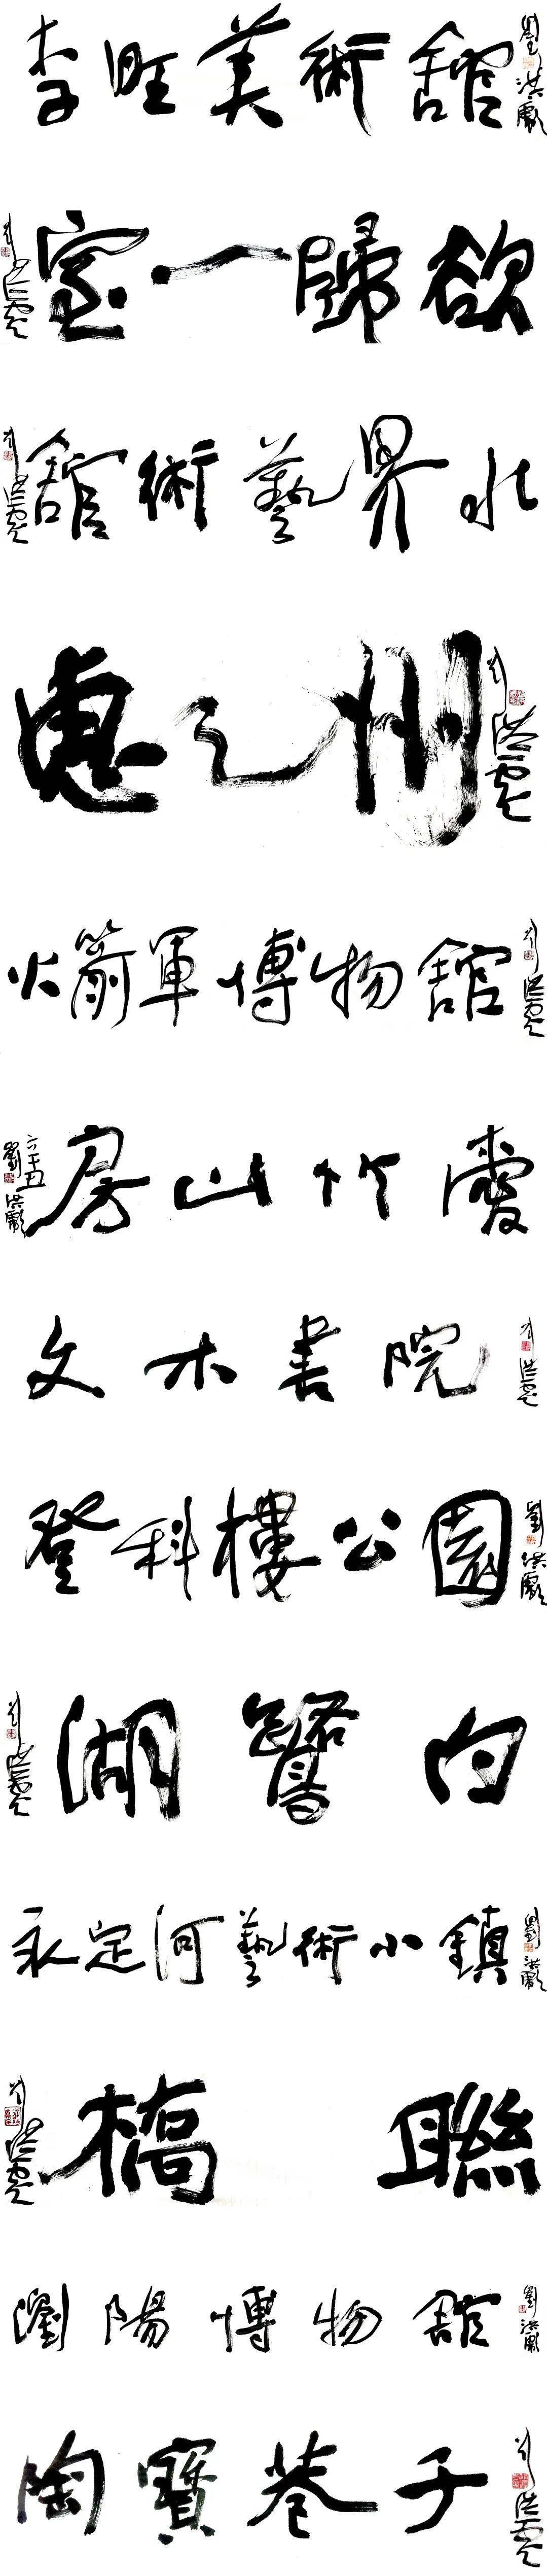 李旺美術館 劉洪彪
欲歸一家 劉洪彪
水界藝術館 劉洪彪
惠之州 劉洪彪
火箭軍博物館 劉洪彪
愛竹山房 辛丑 劉洪彪
文木書院 劉洪彪
登科樓公園 劉洪彪
白鷺湖 劉洪彪
永定河藝術小鎮 劉洪彪
聯橋 劉洪彪
瀏陽博物館 劉洪彪
陶寶巷子 劉洪彪